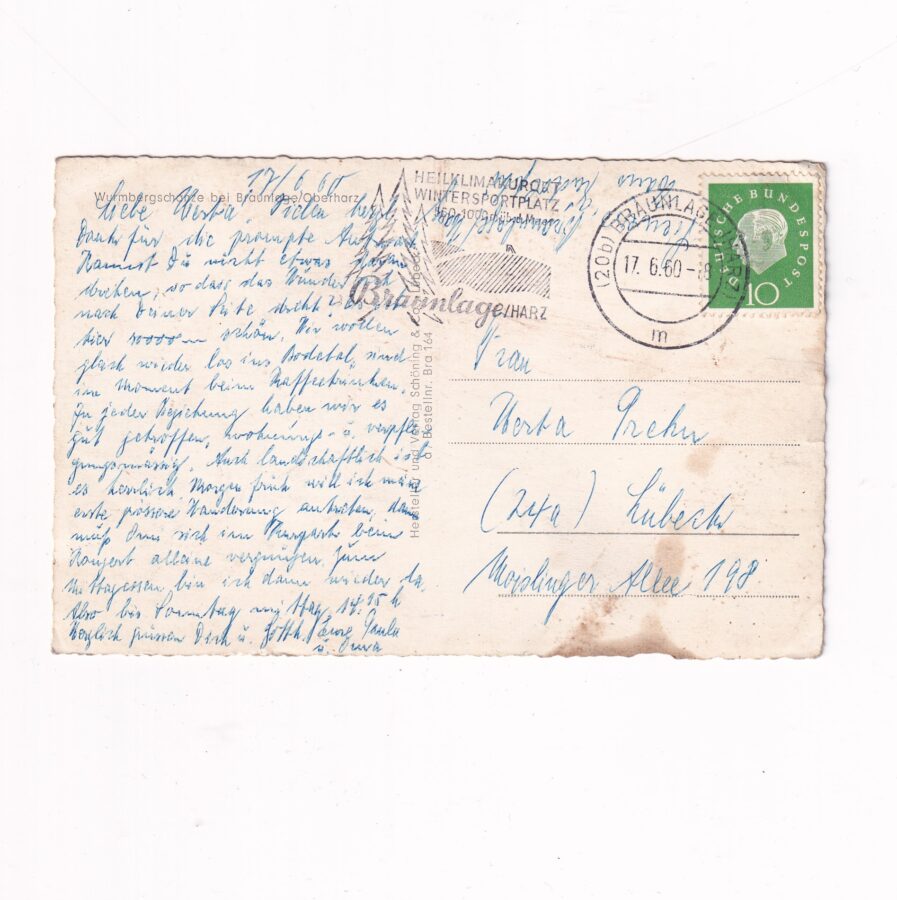 17/6.60
Wurmbergschanze bei Braunlage/Oberharz
Liebe Werba, Vielen herzl.
Dank für die prompte
Kannst Du nicht etwas
drehen, so dass das
nach Deiner Seite dreht?
hier soooo schön. Wir wollen
gleich wieder los ins Bodetal, sind
im Moment beim Kaffeetrinken.
In jeder Beziehung haben wir es
gut getroffen, wohnungs- u. verpfle-
gungsmässig. Auch landschaftlich ist
es herrlich. Morgen früh will ich meine
erste grössere Wanderung antreten, dann
muß Oma sich im Kurpark beim
Konzert alleine vergnügen. Zum
Mittagessen bin ich dann wieder da.
Also bis Sonntag mittag 14.15 h
Herzlich grüssen Dich u. Gotth. Eure Paula
u. Oma
Hersteller und Verlag Schöning & Co., Lübeck
Bestellnr. Bra 164
HEILKLIMAKURORT
WINTERSPORTPLATZ
Braunlage/HARZ
(20b) BRAUNLAGE (HARZ)
17. 6.60-18
m
DEUTSCHE BUNDESPOST
10
Frau
Werba Prehn
(24a) Lübeck
Moislinger Allee 198